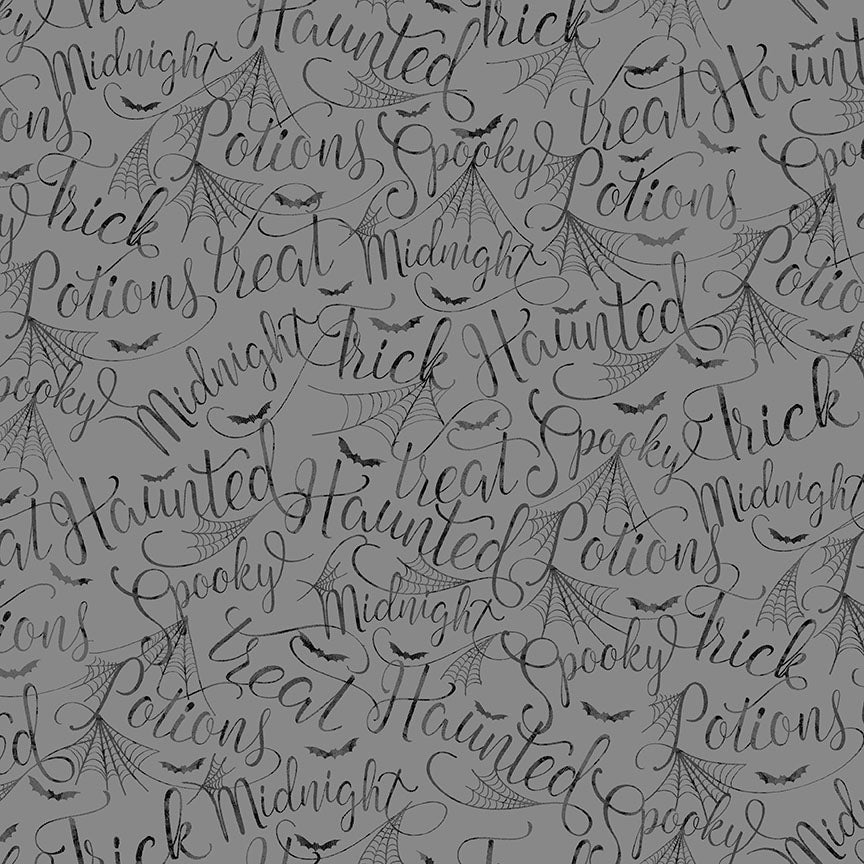 Haunted
Trick
Midnight
treat
Haunted
Potions
Spooky
Potions
Trick
treat
Midnight
Potions
Potions
Haunted
Midnight
Trick
Spooky
Trick
Spooky
treat
Midnight
Haunted
Haunted
Potions
Spooky
Midnight
Trick
Spooky
treat
Potions
Haunted
Potions
Midnight
Trick
Spooky